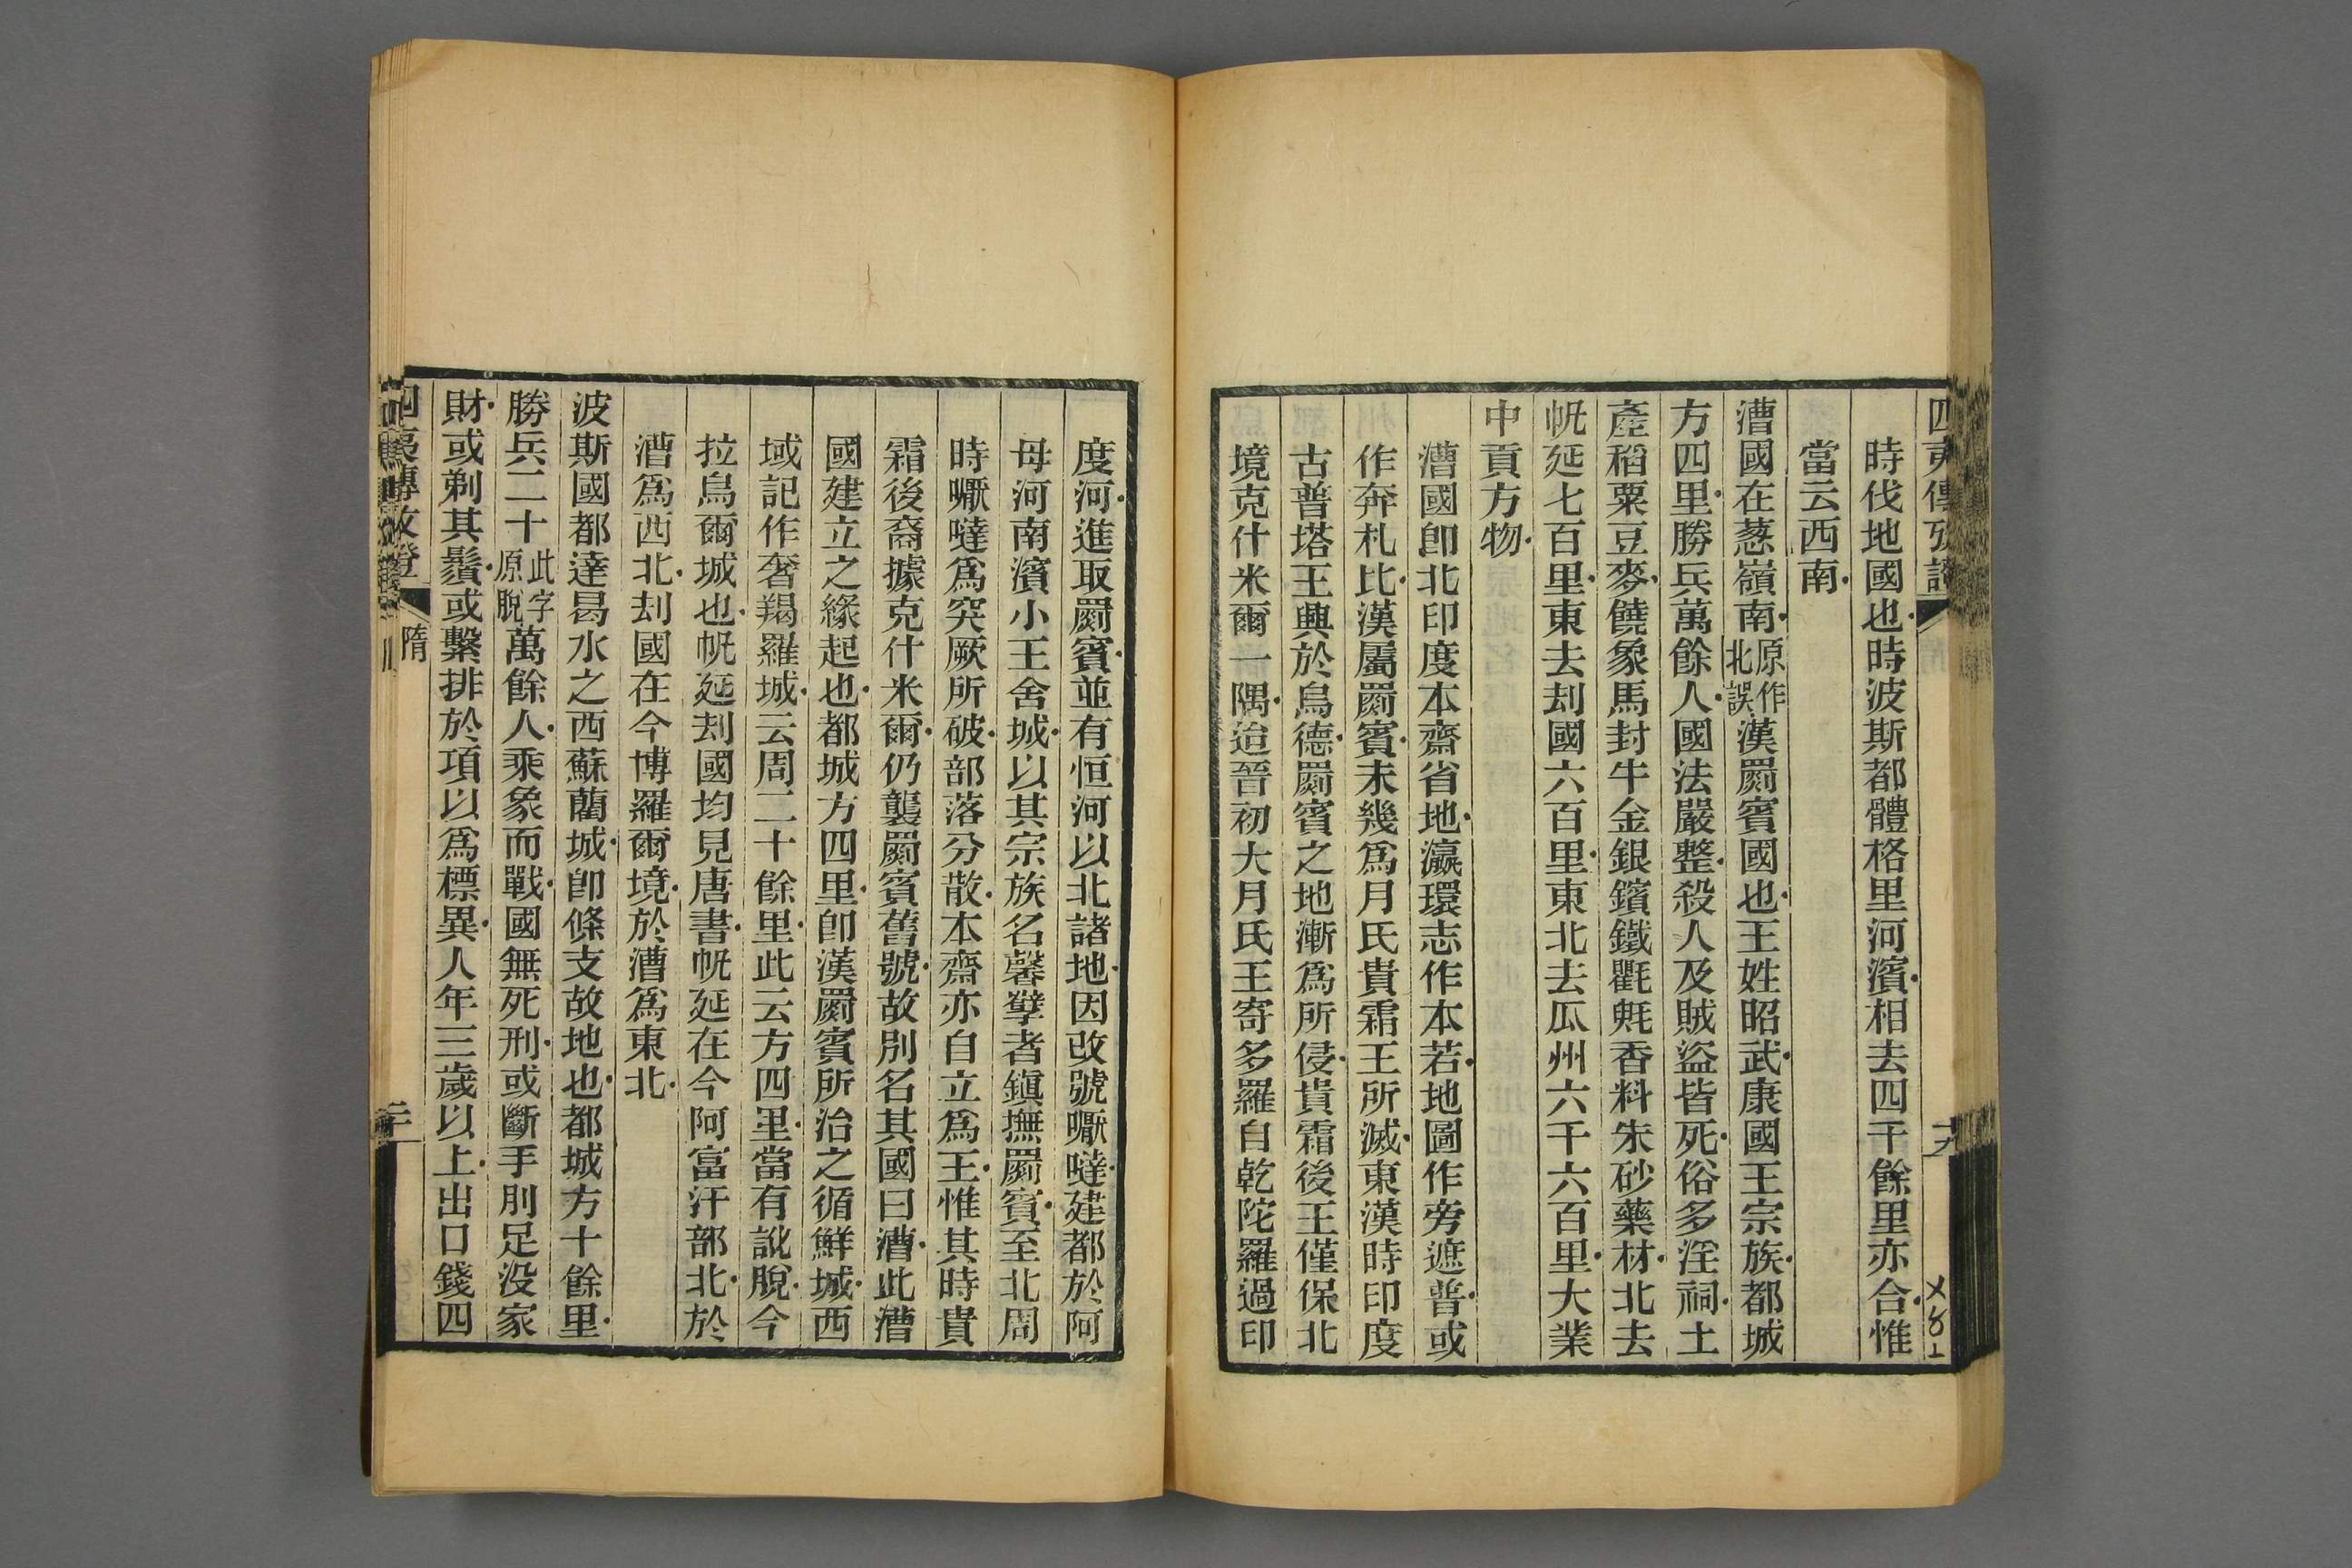 四夷傳攷證
時伐地國也時波斯都體格里河濱相去四千餘里亦合惟
當云西南
漕國在葱嶺南原作北誤漢罽賓國也王姓昭武康國王宗族都城
方四里勝兵萬餘人國法嚴整殺人及賊盜皆死俗多淫祠土
產稻粟豆麥饒象馬封牛金銀鑌鐵氍㲣香料朱砂藥材北去
帆延七百里東去刦國六百里東北去瓜州六千六百里大業
中貢方物
漕國卽北印度本齋省地瀛環志作本若地圖作旁遮普或
作奔札比漢屬罽賓未幾爲月氏貴霜王所滅東漢時印度
古普塔王興於烏德罽賓之地漸爲所侵貴霜後王僅保北
境克什米爾一隅迨晉初大月氏王寄多羅自乾陀羅過印
度河進取罽賓並有恒河以北諸地因改號嚈噠建都於阿
母河南濱小王舍城以其宗族名馨孽者鎭撫罽賓至北周
時嚈噠爲突厥所破部落分散本齋亦自立爲王惟其時貴
霜後裔據克什米爾仍襲罽賓舊號故別名其國曰漕此漕
國建立之緣起也都城方四里卽漢罽賓所治之循鮮城西
域記作奢羯羅城云周二十餘里此云方四里當有訛脫今
拉烏爾城也帆延刦國均見唐書帆延在今阿富汗部北於
漕爲西北刦國在今博羅爾境於漕爲東北
波斯國都達曷水之西蘇藺城卽條支故地也都城方十餘里
勝兵二十此字原脫萬餘人乘象而戰國無死刑或斷手刖足没家
財或剃其鬚或繫排於項以爲標異人年三歲以上出口錢四
四夷傳攷證
隋